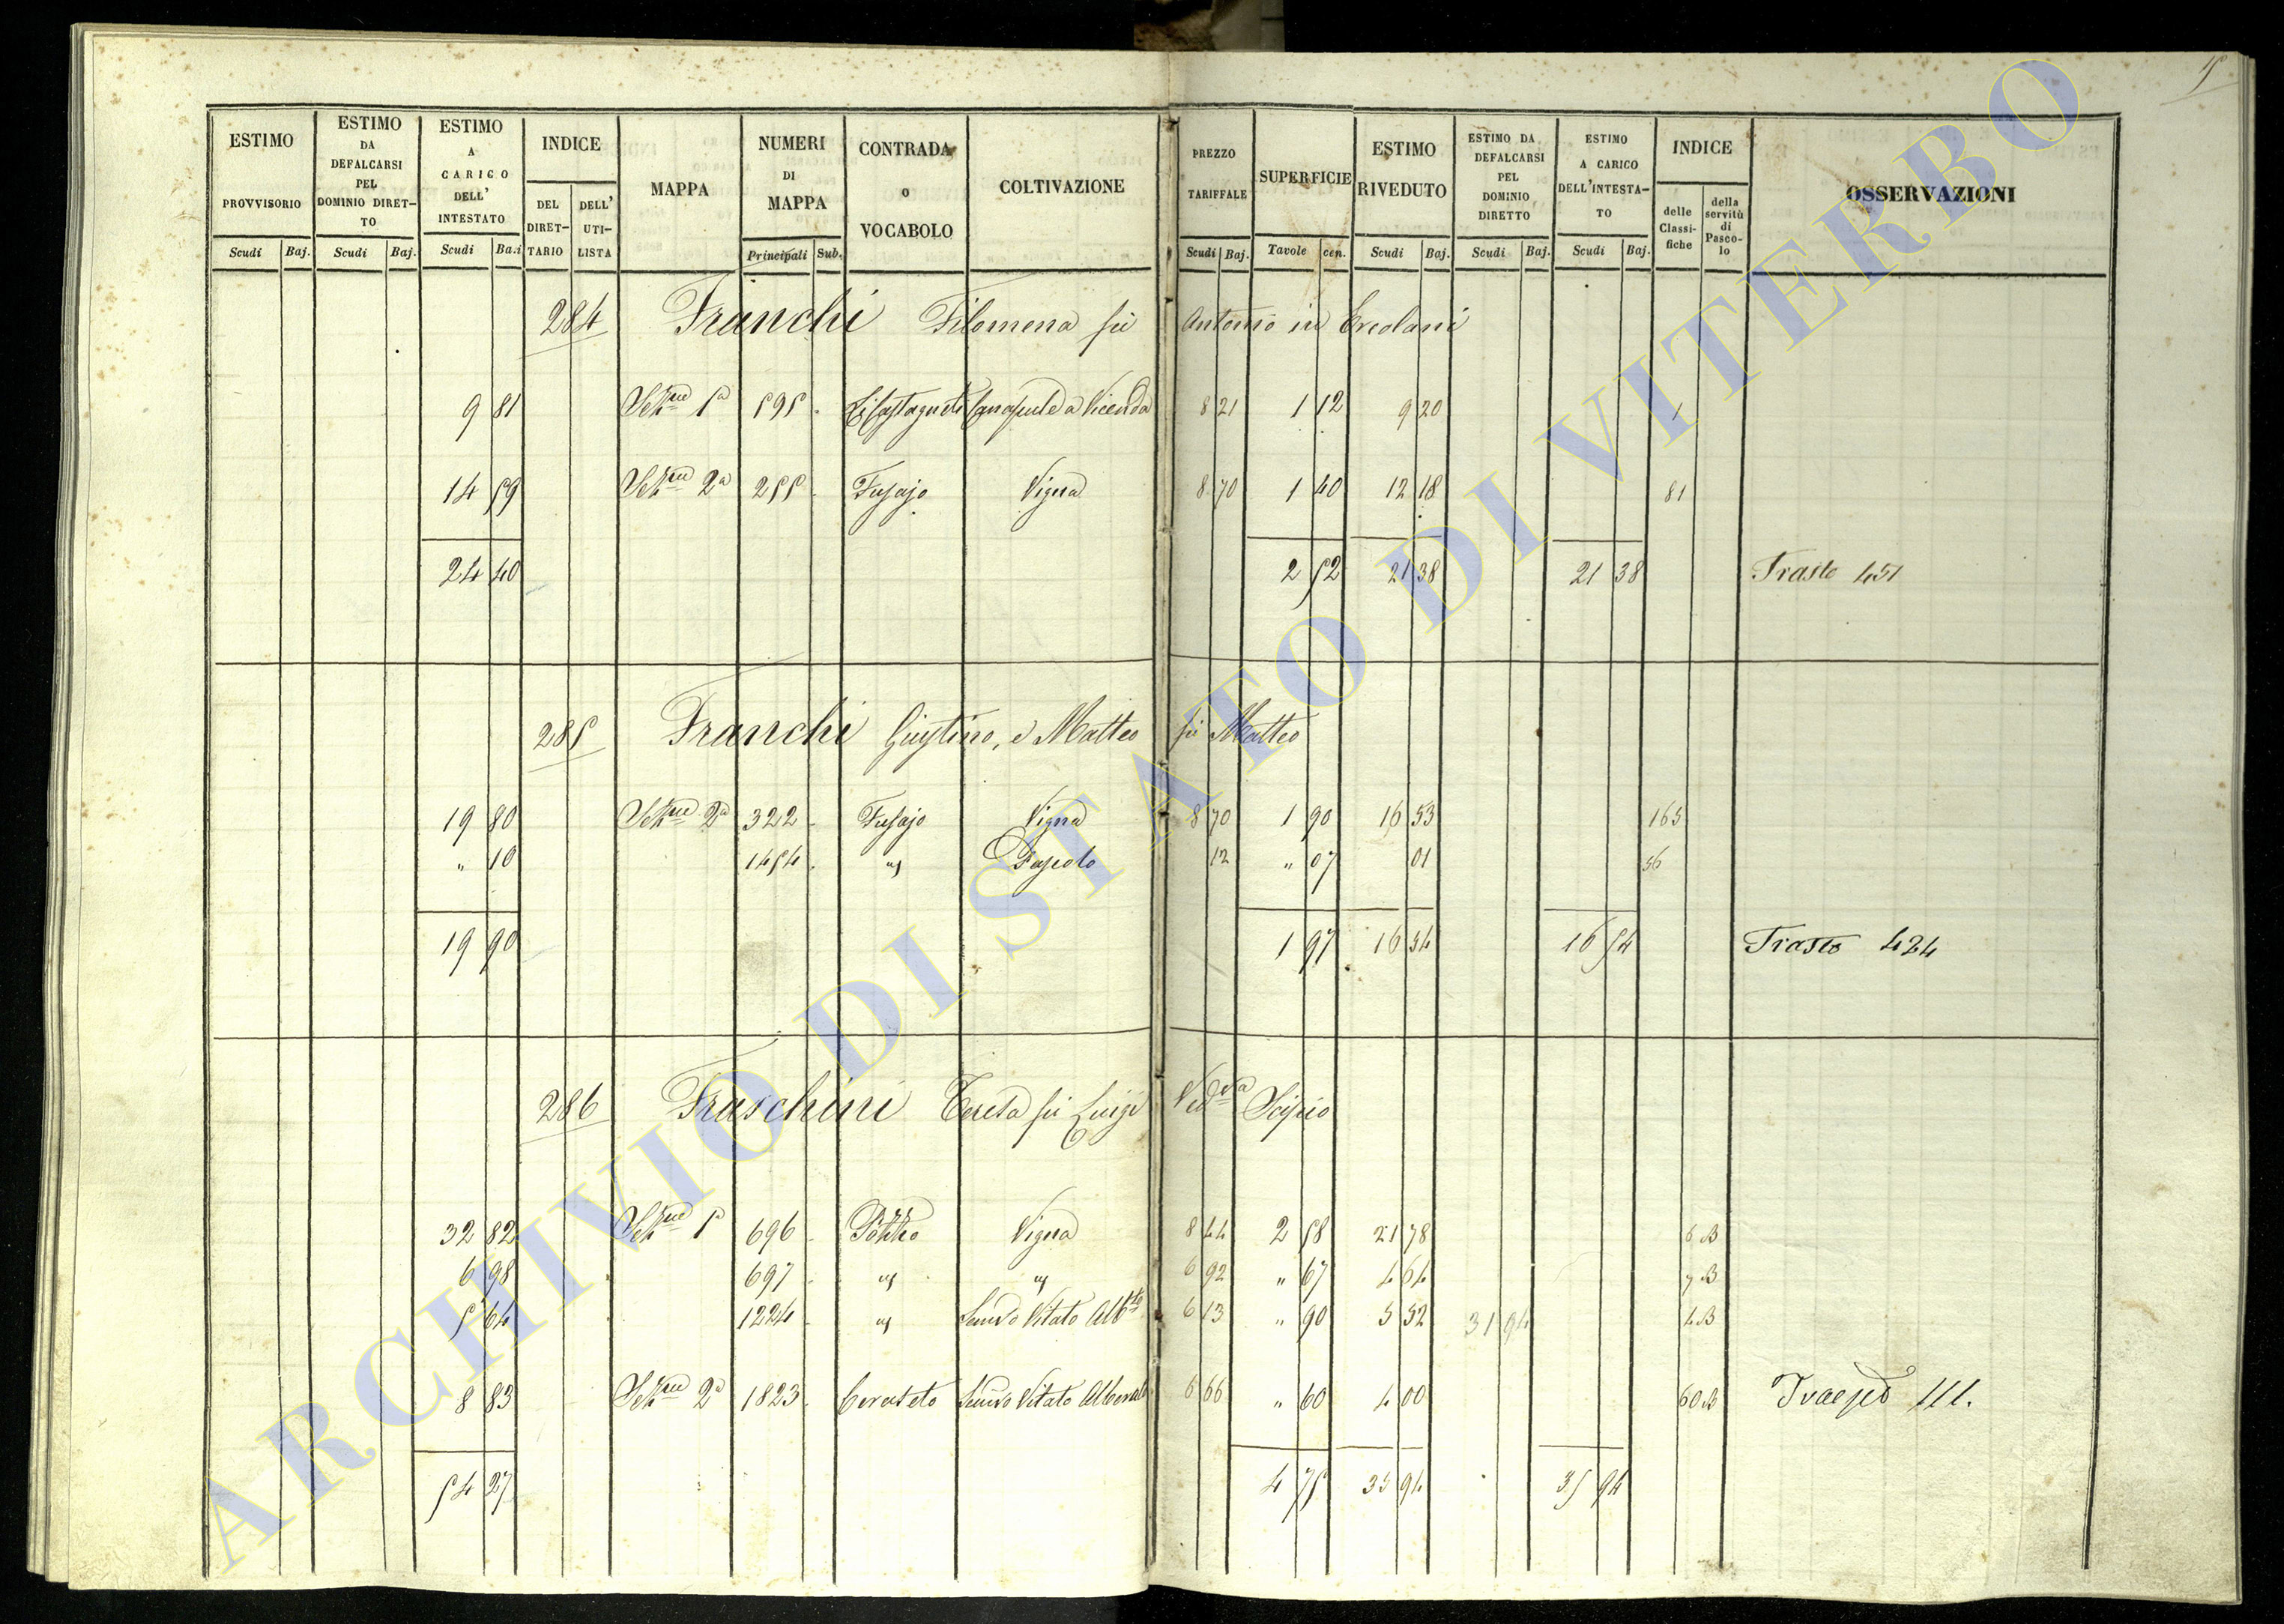 5
ESTIMO PROVVISORIO Scudi Baj.
ESTIMO DA DEFALCARSI PEL DOMINIO DIRET-TO Scudi Baj.
ESTIMO A CARICO DELL' INTESTATO Scudi Baj
INDICE DEL DIRET-TARIO DELL' UTI-LISTA
MAPPA
NUMERI DI MAPPA Principali Sub.
CONTRADA O VOCABOLO
COLTIVAZIONE
PREZZO TARIFFALE Scudi Baj.
SUPERFICIE Tavole cen.
ESTIMO RIVEDUTO Scudi Baj.
ESTIMO DA DEFALCARSI PEL DOMINIO DIRETTO Scudi Baj.
ESTIMO A CARICO DELL'INTESTA-TO Scudi Baj.
INDICE delle Classi-fiche della servitù di Pasco-lo
OSSERVAZIONI
284 Franchi Filomena fù Antonio in Ercolani
9 81 Sezne 1a 595 Canapule a Vicenda 8 21 1 12 9 20 1
14 59 Sezne 2a 255 Fusajo Vigna 8 70 1 40 12 18 81
24 40 2 52 21 38 21 38 Trasto 451
285 Franchi Giustino, e Matteo fù Matteo
19 80 Sezne 2a 322 Fusajo Vigna 8 70 1 90 16 53 165
" 10 1454 " Pascolo 12 " 07 01 56
19 90 1 97 16 54 16 54 Trasto 424
286 Fraschini Teresa fù Luigi Vedva Scipio
32 82 Sezne 1a 696 Pozzo Vigna 8 44 2 58 21 78 6 B
6 98 697 " " 6 92 " 67 4 64 7 B
5 64 1224 " Semvo Vitato Albto 6 13 " 90 5 52 31 94 4 B
8 83 Sezne 2a 1823 Ceraseto Semvo Vitato Alberato 6 66 " 60 4 00 60 B 111.
54 27 4 75 35 94 35 94
ARCHIVIO DI STATO DI VITERBO